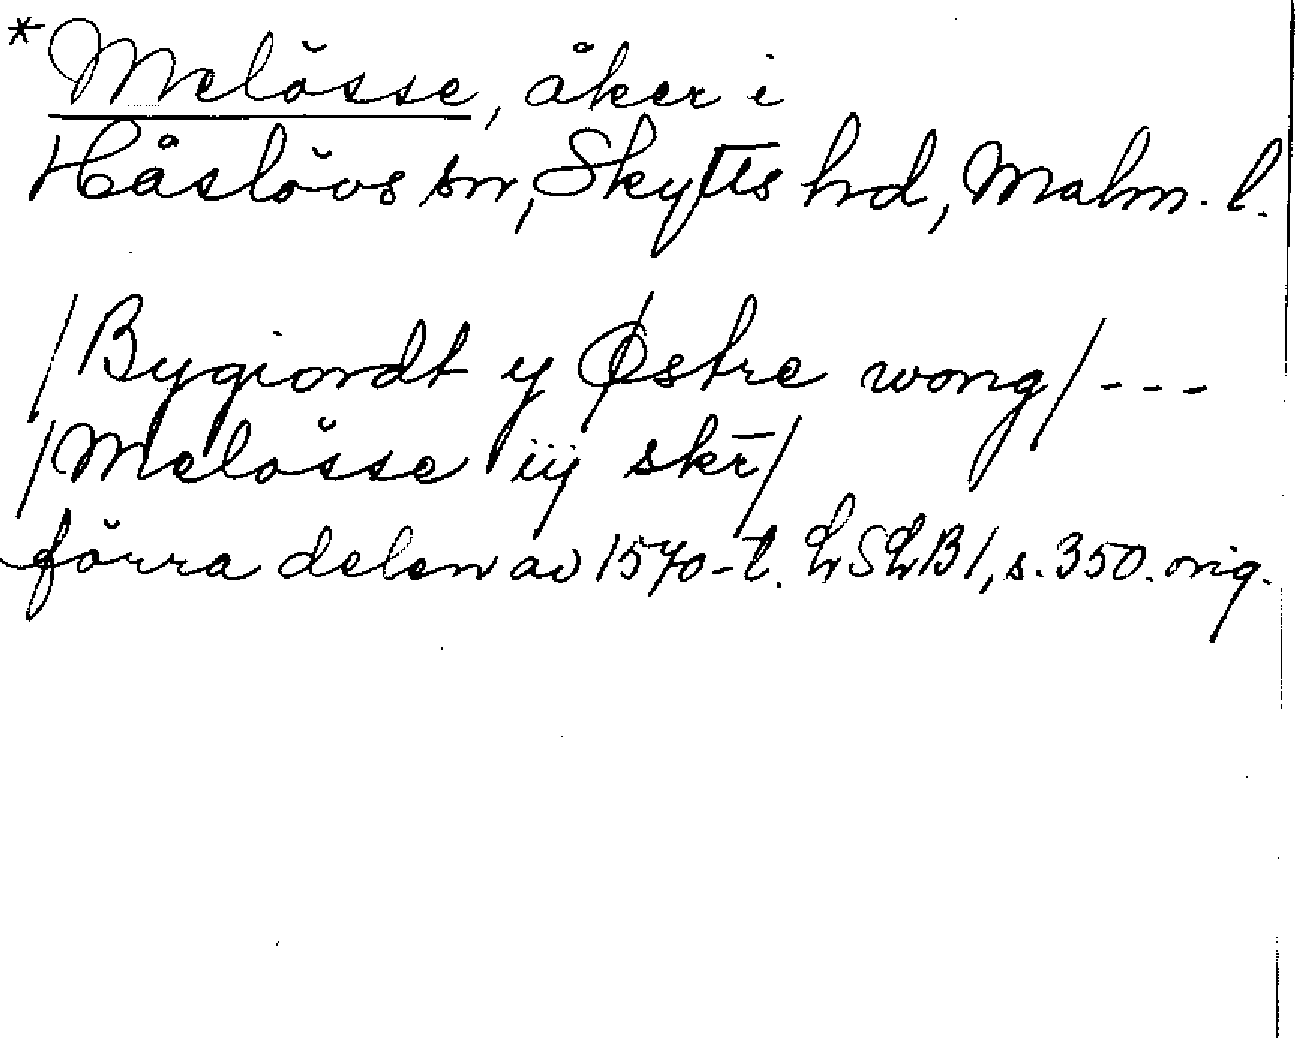 *Melösse, åker i
Håslövs sn, Skytts hd, Malm. l.
/Bygiordt y Østre wong/ ---
/Melösse iij skr̄/
förra delen av 1570-t. LSLB1, s. 350. orig.